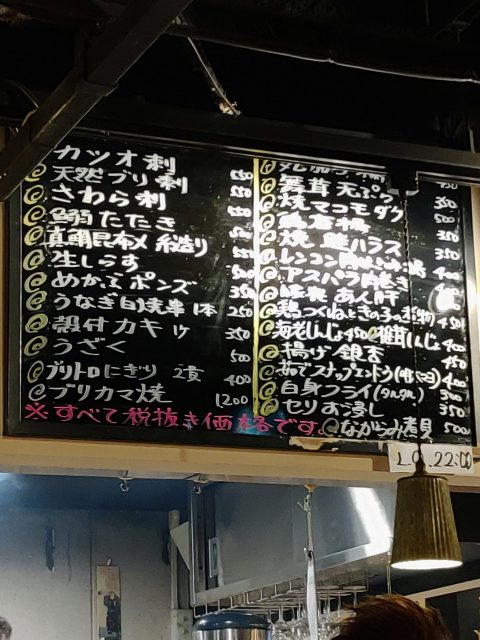 カツオ刺
天然ブリ刺 550
さわら刺 550
鰯たたき
真鯛昆布〆糸造り 550
生しらす
めかぶポンズ 350
うなぎ白焼串1本 250
殻付カキ 1ケ 350
うざく 500
ブリトロにぎり 2貫 400
ブリカマ焼 1200
※すべて税抜き価格です。
舞茸天ぷら 350
焼マコモダケ 500
焼鮭ハラス 350
レンコン
アスパラ肉巻き 400
あん肝
鶏つくねときのこの 450
海老しんじょ450 椎茸しんじょ400
揚げ銀杏 450
ゆでスナップエンドウ 400
白身フライ(タルタル) 500
セリお浸し 350
ながらみ煮貝 500
L.O.22:00